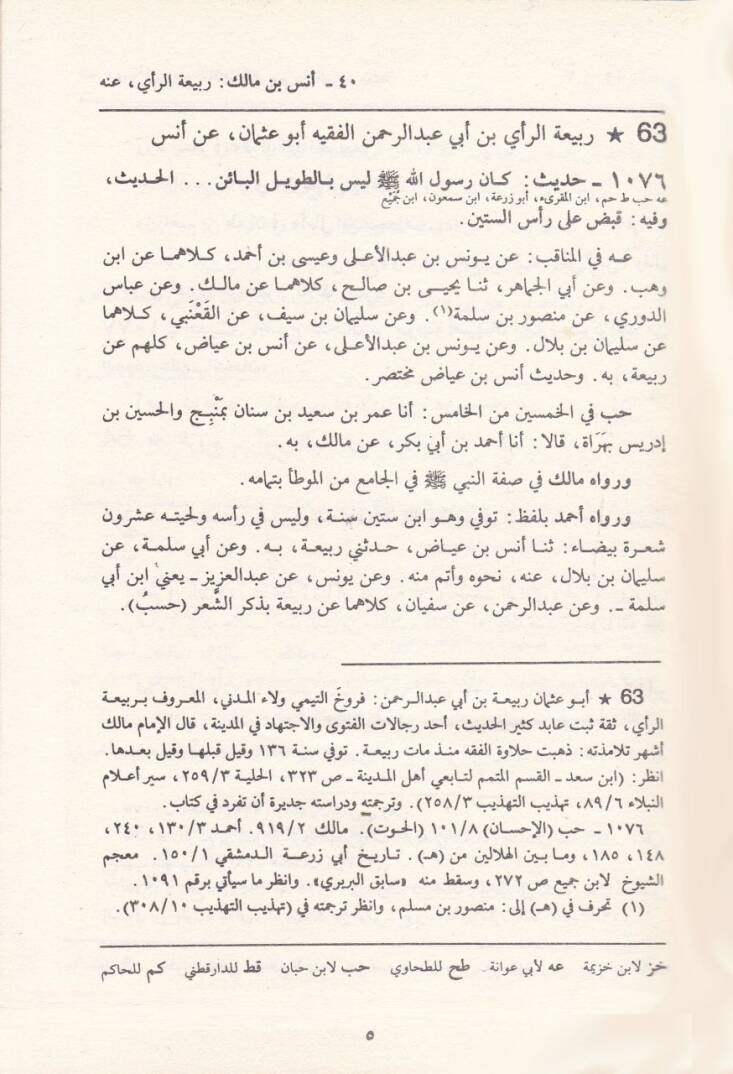 ٤٠ ـ أنس بن مالك: ربيعة الرأي، عنه
63 ★ ربيعة الرأي بن أبي عبدالرحمن الفقيه أبو عثمان، عن أنس
١٠٧٦ ـ حديث: كان رسول الله ﷺ ليس بالطويل البائن... الحديث،
عه حب ط حم، ابن المقرىء، أبو زرعة، ابن سمعون، ابن جُمَيْع
وفيه: قبض على رأس الستين.
عـه في المناقب: عن يونس بن عبدالأعلى وعيسى بن أحمد، كلاهما عن ابن
وهب. وعن أبي الجماهر، ثنا يحيى بن صالح، كلاهما عن مالك. وعن عباس
الدوري، عن منصور بن سلمة(١). وعن سليمان بن سيف، عن القَعْنَبي، كلاهما
عن سليمان بن بلال. وعن يونس بن عبدالأعلى، عن أنس بن عياض، كلهم عن
ربيعة، به. وحديث أنس بن عياض مختصر.
حب في الخمسين من الخامس: أنا عمر بن سعيد بن سنان بمَنْبِج والحسين بن
إدريس بهَرَاة، قالا: أنا أحمد بن أبي بكر، عن مالك، به.
ورواه مالك في صفة النبي ﷺ في الجامع من الموطأ بتمامه.
ورواه أحمد بلفظ: توفي وهو ابن ستين سنة، وليس في رأسه ولحيته عشرون
شعرة بيضاء: ثنا أنس بن عياض، حدثني ربيعة، به. وعن أبي سلمة، عن
سليمان بن بلال، عنه، نحوه وأتم منه. وعن يونس، عن عبدالعزيز ـ يعني ابن أبي
سلمة ـ. وعن عبدالرحمن، عن سفيان، كلاهما عن ربيعة بذكر الشَّعر (حسبُ).
63 ★ أبو عثمان ربيعة بن أبي عبدالرحمن: فروخَ التيمي ولاء المدني، المعروف بربيعة
الرأي، ثقة ثبت عابد كثير الحديث، أحد رجالات الفتوى والاجتهاد في المدينة، قال الإمام مالك
أشهر تلامذته: ذهبت حلاوة الفقه منذ مات ربيعة. توفي سنة ١٣٦ وقيل قبلها وقيل بعدها.
انظر: (ابن سعد ـ القسم المتمم لتابعي أهل المدينة ـ ص ٣٢٣، الحلية ٢٥٩/٣، سير أعلام
النبلاء ٨٩/٦، تهذيب التهذيب ٢٥٨/٣). وترجمته ودراسته جديرة أن تفرد في كتاب.
١٠٧٦ ـ حب (الإحسان) ١٠١/٨ (الحوت). مالك ٩١٩/٢. أحمد ١٣٠/٣، ٢٤٠،
١٤٨، ١٨٥، وما بين الهلالين من (هـ). تاريخ أبي زرعة الدمشقي ١٥٠/١. معجم
الشيوخ لابن جميع ص ٢٧٢، وسقط منه «سابق البربري». وانظر ما سيأتي برقم ١٠٩١.
(١) تحرف في (هـ) إلى: منصور بن مسلم، وانظر ترجمته في (تهذيب التهذيب ٣٠٨/١٠).
خز لابن خزيمة عه لأبي عوانة طح للطحاوي حب لابن حبان قط للدارقطني كم للحاكم
٥